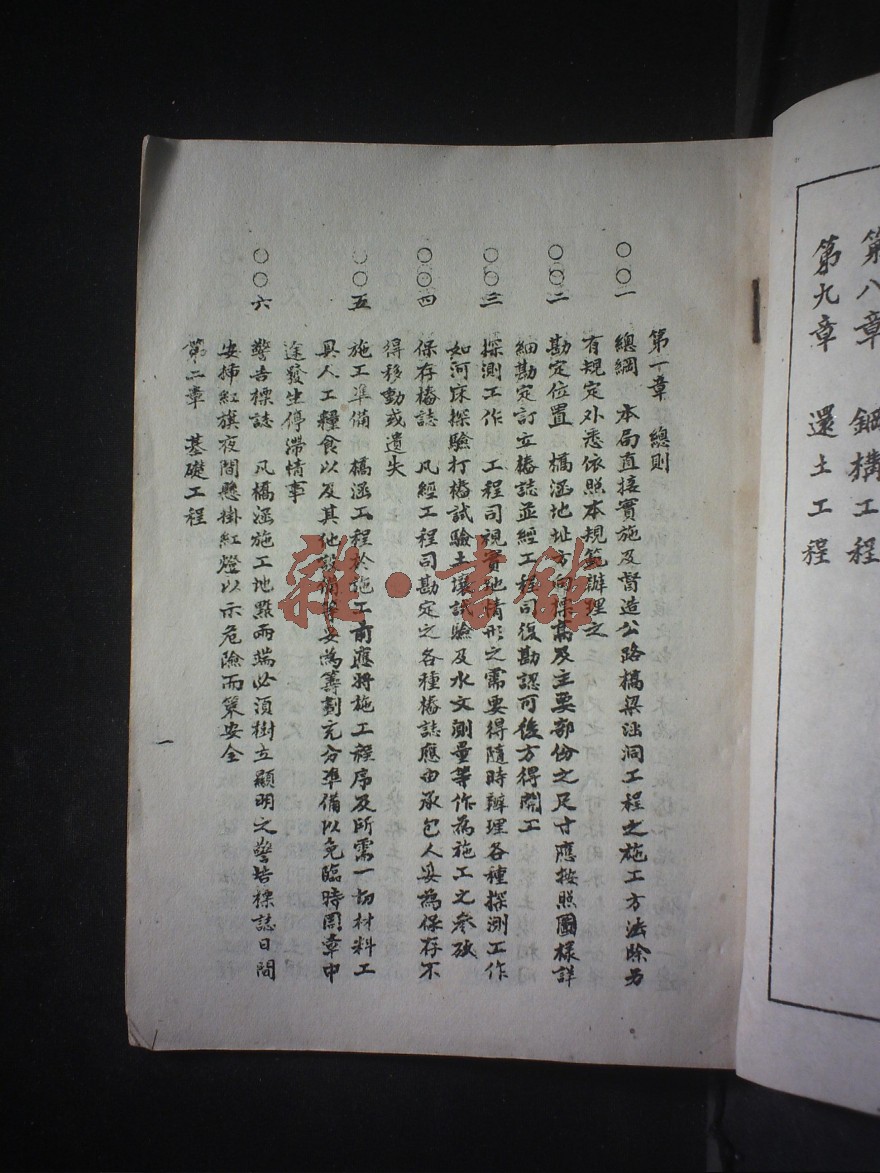 第八章 鋼構工程
第九章 還土工程
第一章 總則
〇〇一 總綱 本局直接實施及督造公路橋梁涵洞工程之施工方法除另
有規定外悉依照本規範辦理之
〇〇二 勘定位置 橋涵地址方向標高及主要部份之尺寸應按照圖樣詳
細勘定訂立樁誌並經工程司復勘認可後方得開工
〇〇三 探測工作 工程司視實地情形之需要得隨時辦理各種探測工作
如河床探驗打樁試驗土壤試驗及水文測量等作為施工之參攷
〇〇四 保存樁誌 凡經工程司勘定之各種樁誌應由承包人妥為保存不
得移動或遺失
〇〇五 施工準備 橋涵工程於施工前應將施工程序及所需一切材料工
具人工糧食以及其他設備等妥為籌劃充分準備以免臨時周章中
途發生停滯情事
〇〇六 警告標誌 凡橋涵施工地點兩端必須樹立顯明之警告標誌日間
安插紅旗夜間懸掛紅燈以示危險而策安全
第二章 基礎工程
一
雜·書館